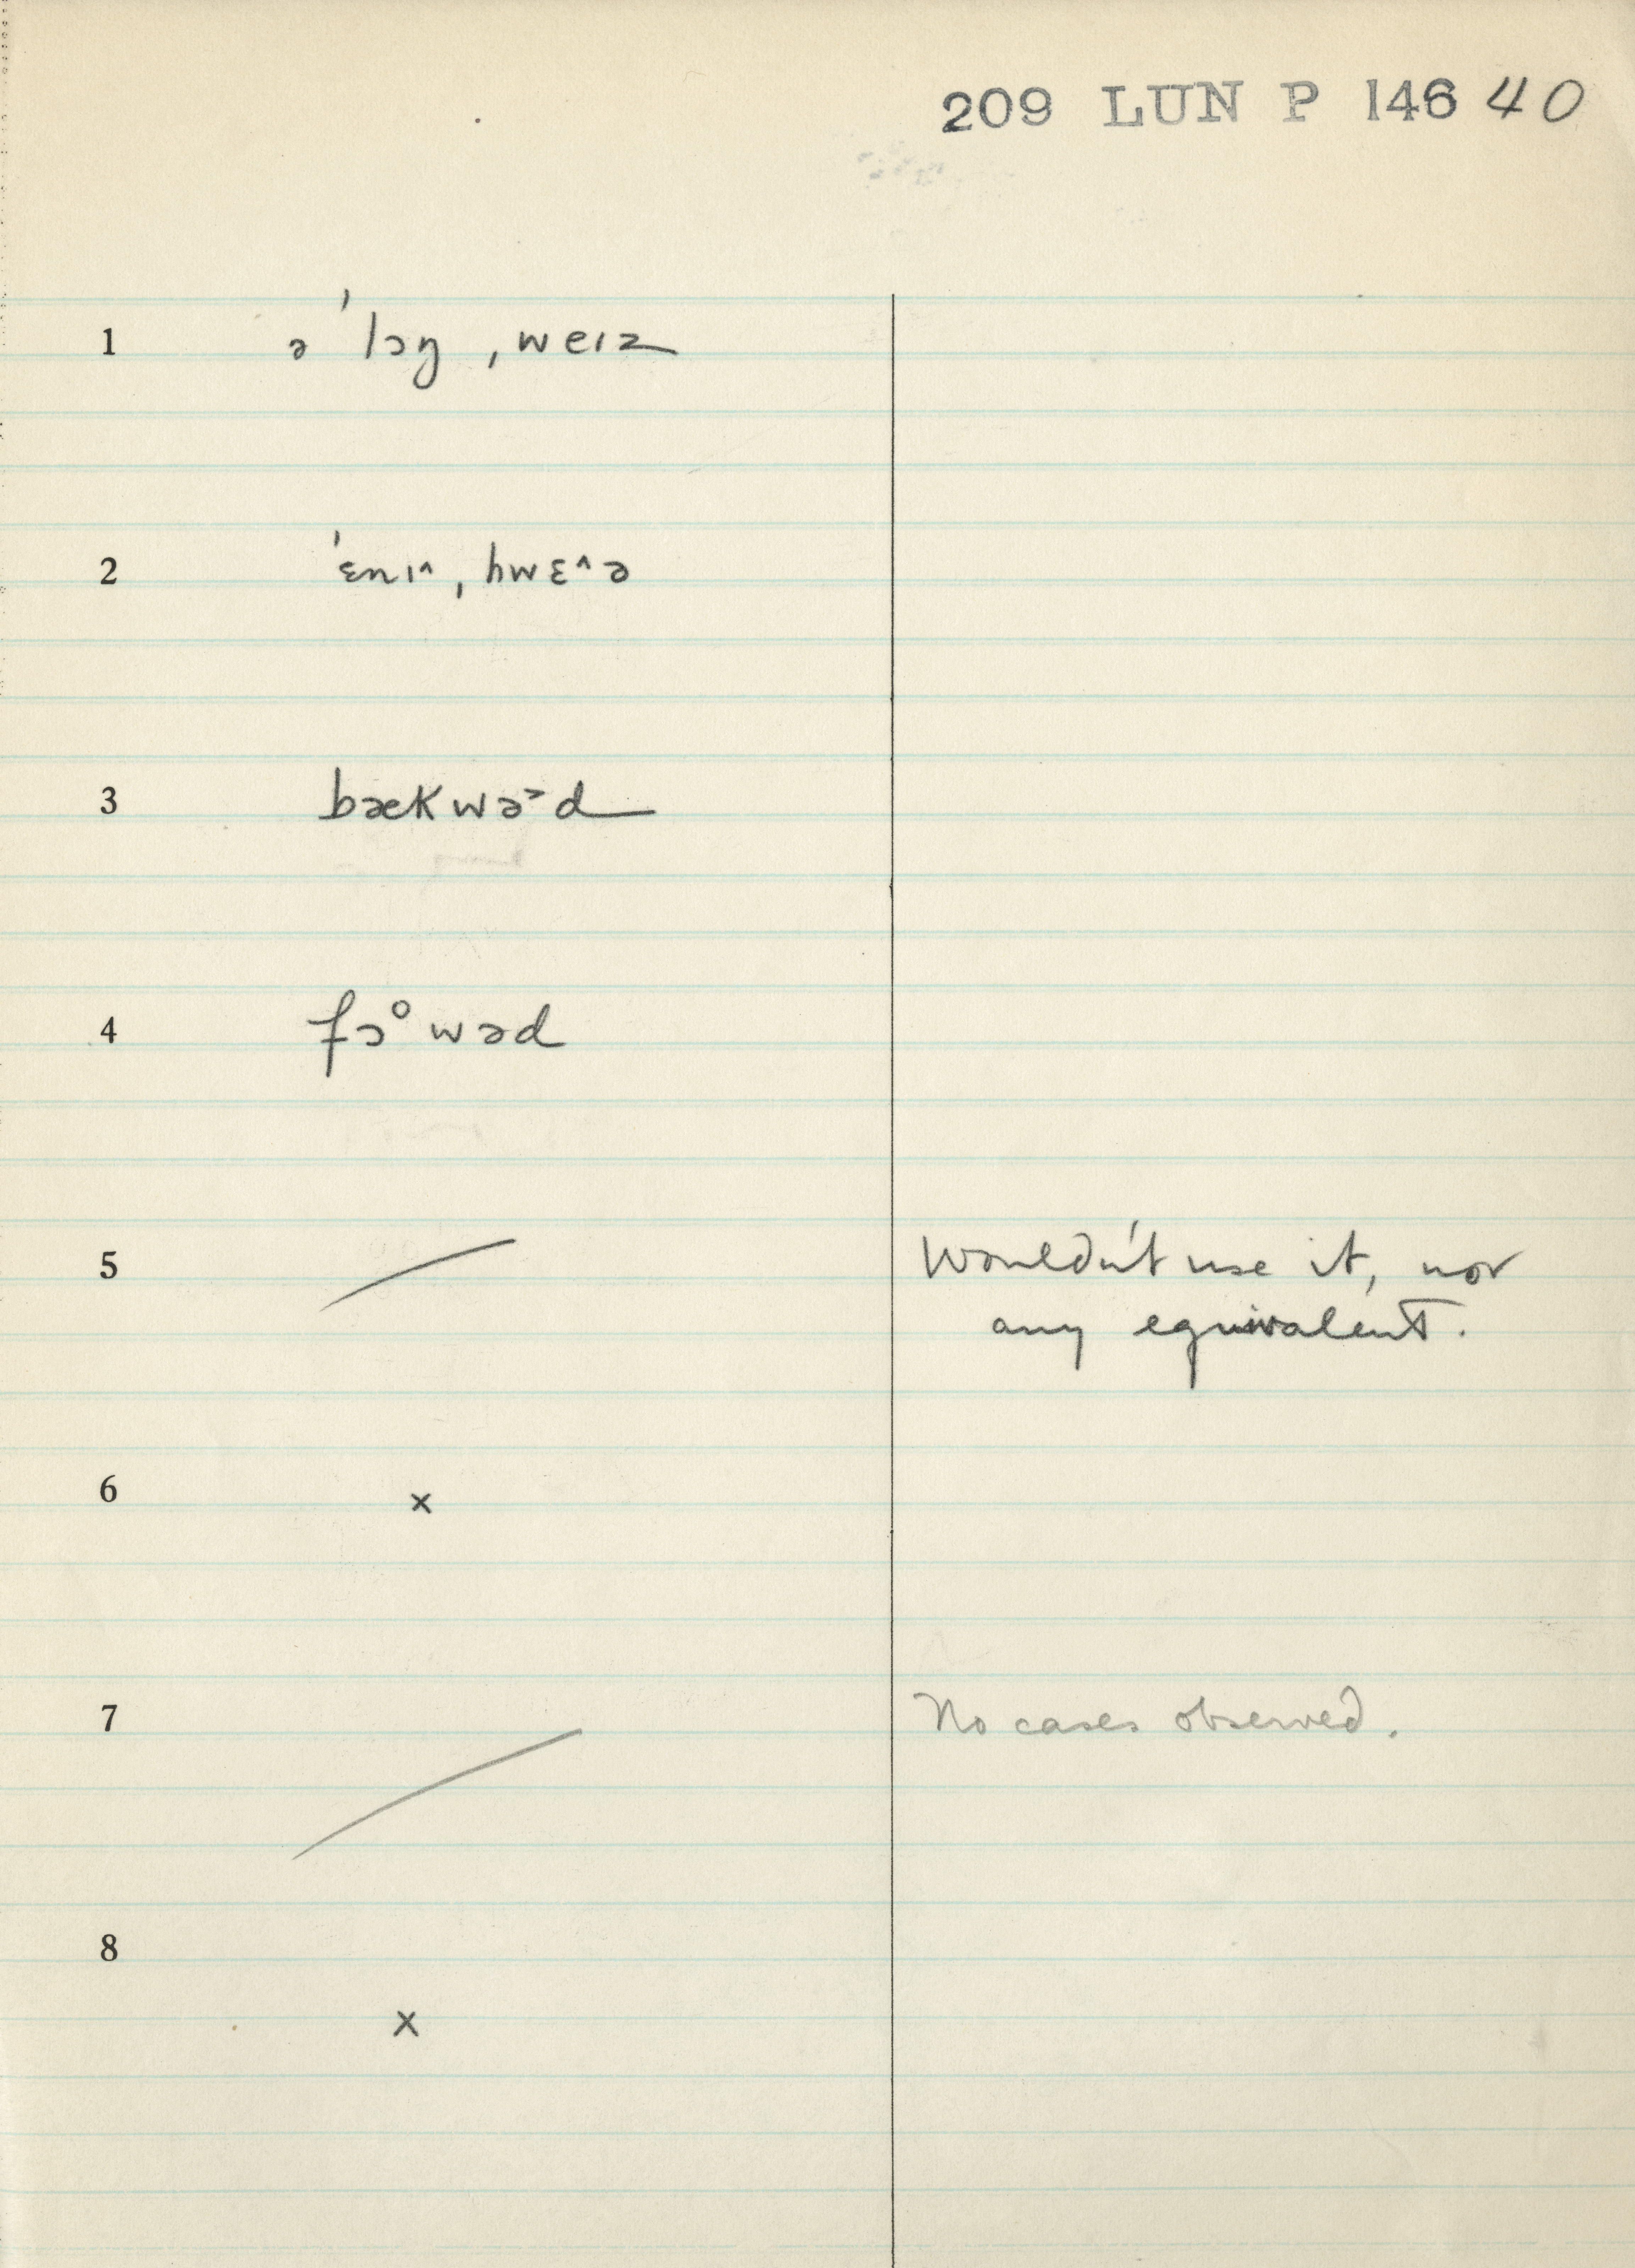 209 LUN P 146 40
1 ə ˈlɔŋ ˌweɪz
2 ˈɛnɪ^ ˌhwɛ^ə
3 bækwə˃d
4 fɔᵒwəd
5 Wouldn't use it, nor
any equivalent.
6 ×
7 No cases observed.
8 ×